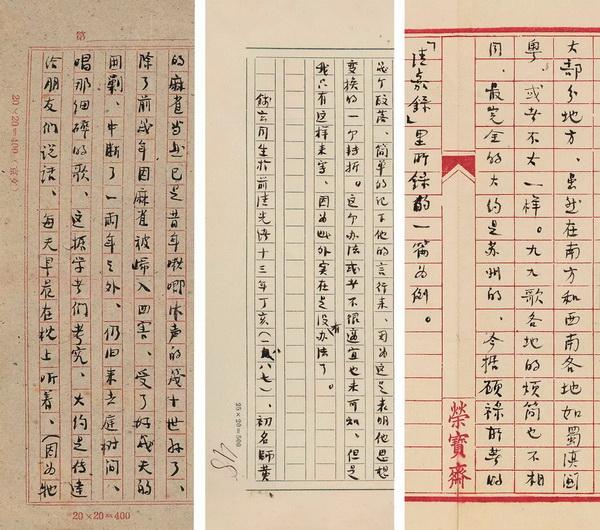 第
的麻雀当然已是昔年啾唧作声的幾十世孙了、
除了前幾年因麻雀被归入四害、受了好幾天的
围剿、中断了一两年之外、仍旧来去庭树间、
唱那细碎的歌、这据学者们考究、大约是传达
给朋友们说话、每天早晨在枕上听着、（因为牠
20×20=400
20×20=400
个段落、简单的记下他的言行来、因为这是表明他思想
变换的一个转折。这个办法或者不很適宜也未可知、但是
我只有这样来写、因为此外实在是没有办法了。
钱玄同生於前清光绪十三年丁亥（一八八七）、初名师黄
25×20=500
大部分地方、虽然在南方和西南各地如蜀滇闽
粤、或者不大一样。九九歌各地的烦简也不相
同、最完全的大约是苏州的、今据顾禄所著的
「清嘉録」里所録的一篇为例。
榮寶齋